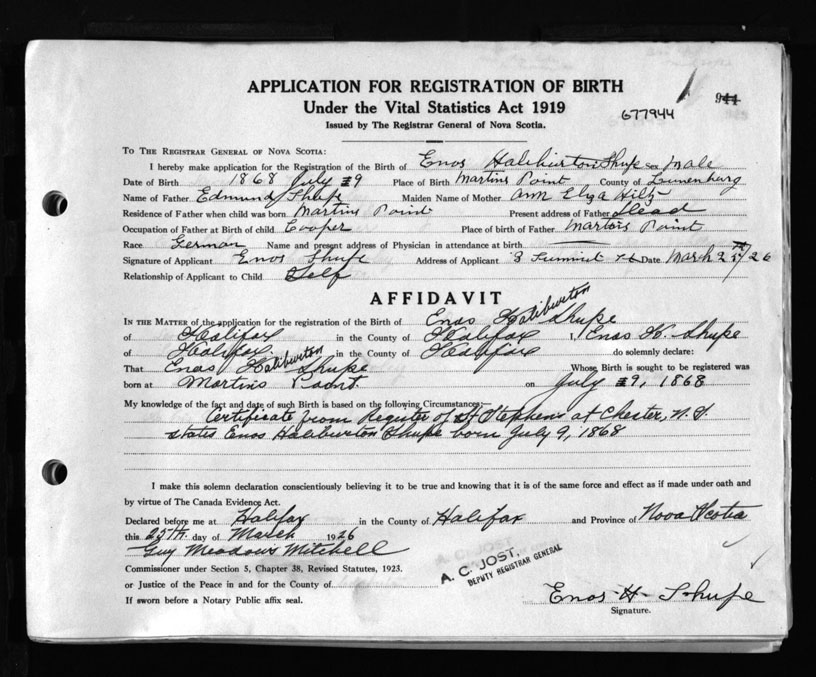 APPLICATION FOR REGISTRATION OF BIRTH
Under the Vital Statistics Act 1919
Issued by The Registrar General of Nova Scotia.
677944
944
TO THE REGISTRAR GENERAL OF NOVA SCOTIA:
I hereby make application for the Registration of the Birth of Enos Haliburton Shupe a male
Date of Birth 1868 July 9 Place of Birth Martins Point County of Lunenburg
Name of Father Edmund Shupe Maiden Name of Mother Ann Elyza Hilz
Residence of Father when child was born Martins Point Present address of Father Dead
Occupation of Father at Birth of child Cooper Place of birth of Father Martins Point
Race German Name and present address of Physician in attendance at birth
Signature of Applicant Enos Shupe Address of Applicant 8 Summit Date March 25th/26
Relationship of Applicant to Child Self
AFFIDAVIT
IN THE MATTER of the application for the registration of the Birth of Enos Haliburton Shupe
of Halifax in the County of Halifax I, Enos H. Shupe
of Halifax in the County of Halifax do solemnly declare:
That Enos Haliburton Shupe Whose Birth is sought to be registered was
born at Martins Point on July 9, 1868
My knowledge of the fact and date of such Birth is based on the following Circumstances:—
Certificate from Register of St Stephens at Chester, N.S.
states Enos Haliburton Shupe born July 9, 1868
I make this solemn declaration conscientiously believing it to be true and knowing that it is of the same force and effect as if made under oath and
by virtue of The Canada Evidence Act.
Declared before me at Halifax in the County of Halifax and Province of Nova Scotia
this 25th. day of March 1926
Guy Meadows Mitchell
Commissioner under Section 5, Chapter 38, Revised Statutes, 1923.
A. C. JOST,
DEPUTY REGISTRAR GENERAL
or Justice of the Peace in and for the County of
If sworn before a Notary Public affix seal.
Enos H. Shupe
Signature.